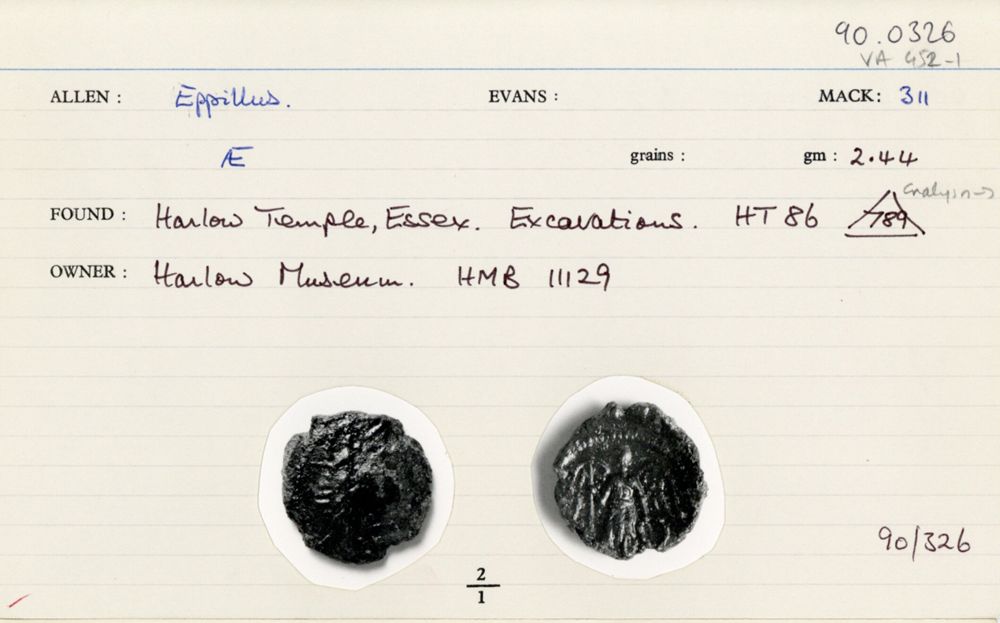 90.0326
VA 452-1
ALLEN : Eppillus. EVANS : MACK: 311
Æ grains : gm : 2.44
analysis→
FOUND : Harlow Temple, Essex. Excavations. HT 86 789
OWNER : Harlow Museum. HMB 11129
90/326
2
1